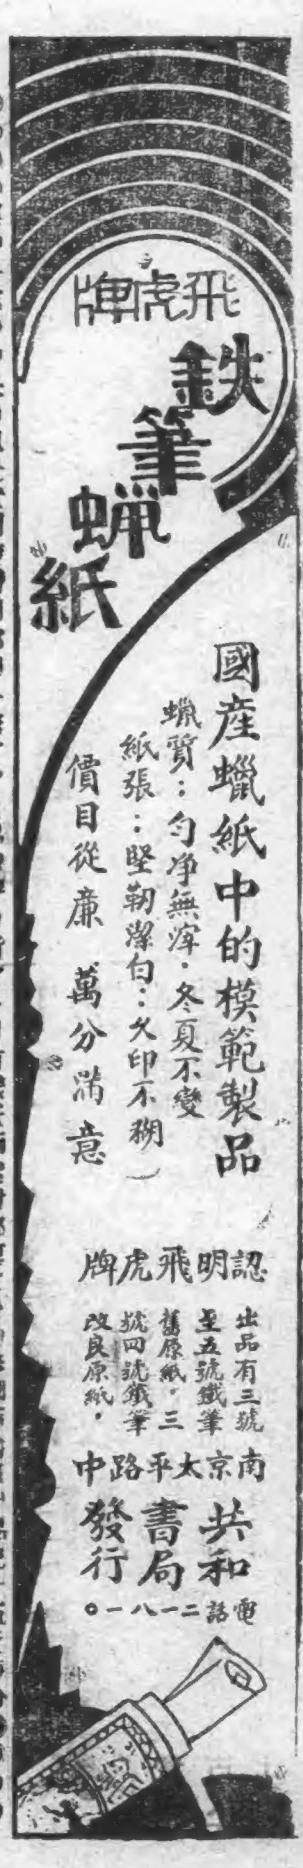 飛虎牌
鉄筆蝋紙
國産蠟紙中的模範製品
蝋質：勻净無滓．冬夏不變
紙張：堅韌潔白：久印不糊
價目從廉　萬分满意
認明飛虎牌
出品有三號
至五號鐵筆
舊原紙．三
號四號鐵筆
改良原紙．
南京太平路中
共和
書局
發行
電話二一八一〇